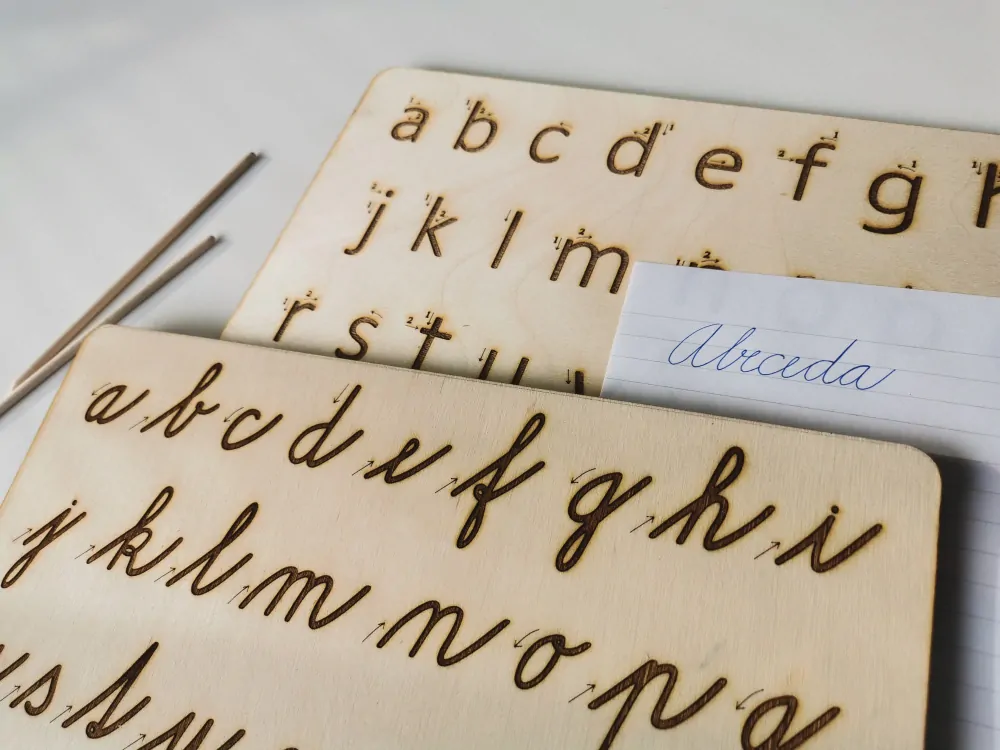 a b c d e f g h
j k l m n
r s t u
Abeceda
a b c d e f g h i
j k l m n o p q
s t u